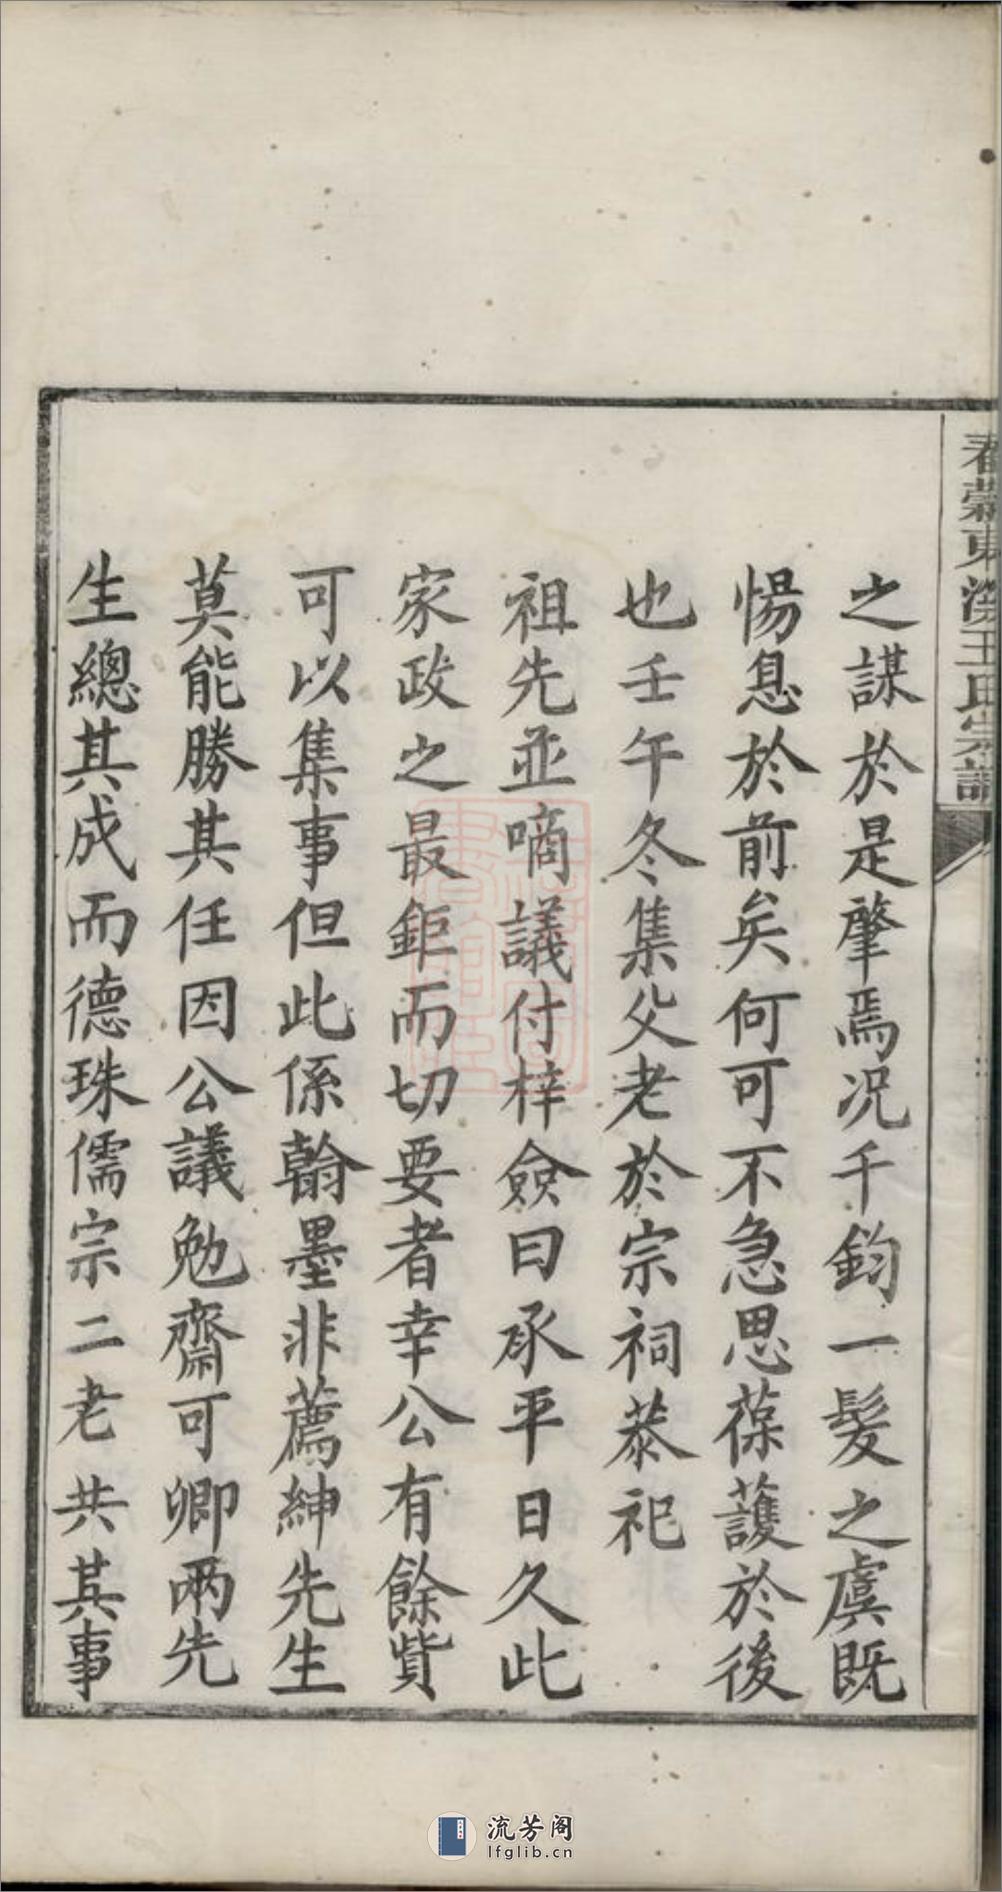 春穀東溪王氏宗譜
之謀於是肇焉况千鈞一髮之虞既
惕息於前矣何可不急思葆護於後
也壬午冬集父老於宗祠恭祀
祖先並啇議付梓僉曰承平日久此
家政之最鉅而切要者幸公有餘貲
可以集事但此係翰墨非薦紳先生
莫能勝其任因公議勉齋可卿兩先
生總其成而德珠儒宗二老共其事
流芳阁
lfglib.cn